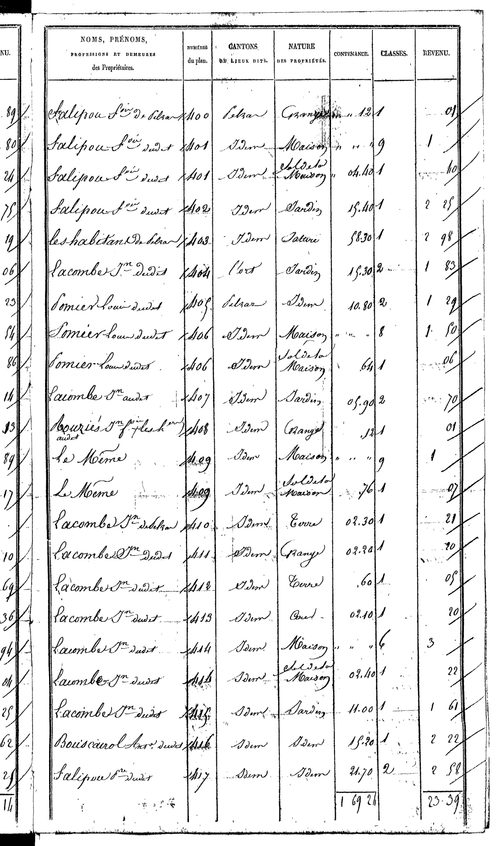 NU. NOMS, PRÉNOMS, PROFESSIONS ET DEMEURES des Propriétaires. NUMÉROS du plan. CANTONS OU LIEUX DITS. NATURE DES PROPRIÉTÉS. CONTENANCE. CLASSES. REVENU.
89 Salipou de Petrar 1400 Petrar Grange " " 12 1 01
80 Salipou dudit 1401 Idem Maison " " " 9 1 "
24 Salipou dudit 1401 Idem Sol de la Maison 04.40 1 40
75 Salipou dudit 1402 Idem Jardin 15.40 1 2 25
19 les habitans de Petrar 1403 Idem Pature 58.30 1 2 98
06 Lacombe Jn dudit 1404 l'ort Jardin 15.30 2 1 83
23 Pomier Louis dudit 1405 Petrar Idem 10.80 2 1 29
54 Pomier Louis dudit 1406 Idem Maison " " " 8 1 50
86 Pomier Louis dudit 1406 Idem Sol de la Maison 64 1 06
14 Lacombe Jn audit 1407 Idem Jardin 05.90 2 70
13 Rouziés Jn audit 1408 Idem Grange 12 1 01
89 Le Même 1409 Idem Maison " " " 9 1
17 Le Même 1409 Idem Sol de la Maison 76 1 07
Lacombe Jn de Petrar 1410 Idem Terre 02.30 1 21
10 Lacombe Jn dudit 1411 Idem Grange 02.20 1 20
69 Lacombe Jn dudit 1412 Idem Terre .60 1 05
36 Lacombe Jn dudit 1413 Idem 02.10 1 20
94 Lacombe Jn dudit 1414 Idem Maison " " " 6 3
04 Lacombe Jn dudit 1414 Idem Sol de la Maison 02.40 1 22
25 Lacombe Jn dudit 1415 Idem Jardin 11.00 1 1 61
62 Bouiscarol Ant. dudit 1416 Idem Idem 15.20 1 2 22
25 Salipou dudit 1417 Idem Idem 21.70 2 2 58
14 1 69 26 23.39